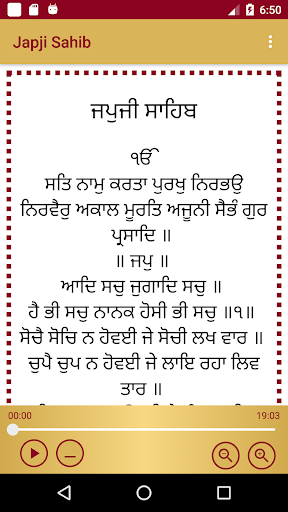 6:50
Japji Sahib
ਜਪੁਜੀ ਸਾਹਿਬ
ੴ
ਸਤਿ ਨਾਮੁ ਕਰਤਾ ਪੁਰਖੁ ਨਿਰਭਉ
ਨਿਰਵੈਰੁ ਅਕਾਲ ਮੂਰਤਿ ਅਜੂਨੀ ਸੈਭੰ ਗੁਰ
ਪ੍ਰਸਾਦਿ ॥
॥ ਜਪੁ ॥
ਆਦਿ ਸਚੁ ਜੁਗਾਦਿ ਸਚੁ ॥
ਹੈ ਭੀ ਸਚੁ ਨਾਨਕ ਹੋਸੀ ਭੀ ਸਚੁ ॥੧॥
ਸੋਚੈ ਸੋਚਿ ਨ ਹੋਵਈ ਜੇ ਸੋਚੀ ਲਖ ਵਾਰ ॥
ਚੁਪੈ ਚੁਪ ਨ ਹੋਵਈ ਜੇ ਲਾਇ ਰਹਾ ਲਿਵ
ਤਾਰ ॥
00:00 19:03